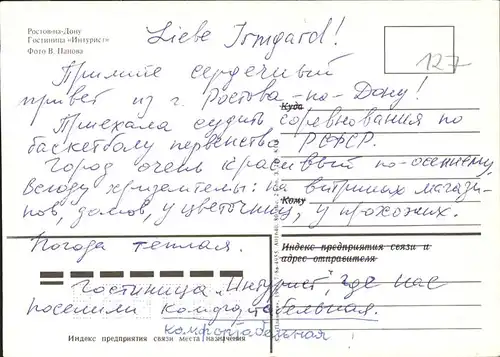 Ростов-на-Дону
Гостиница «Интурист»
Фото В. Панова
Liebe Irmgard!
127
Примите сердечный
привет из г. Ростова-по-Дону!
Куда
Приехала судить соревнования по
баскетболу первенство РСФСР.
Город очень красивый по-осеннему,
всюду хризантемы: на витринах магази-
Кому
нов, домов, у цветочниц, у прохожих.
Погода теплая.
Индекс предприятия связи и
адрес отправителя
Гостиница „Интурист", где нас
поселили комфортабельная.
комфортабельная
Индекс предприятия связи места назначения